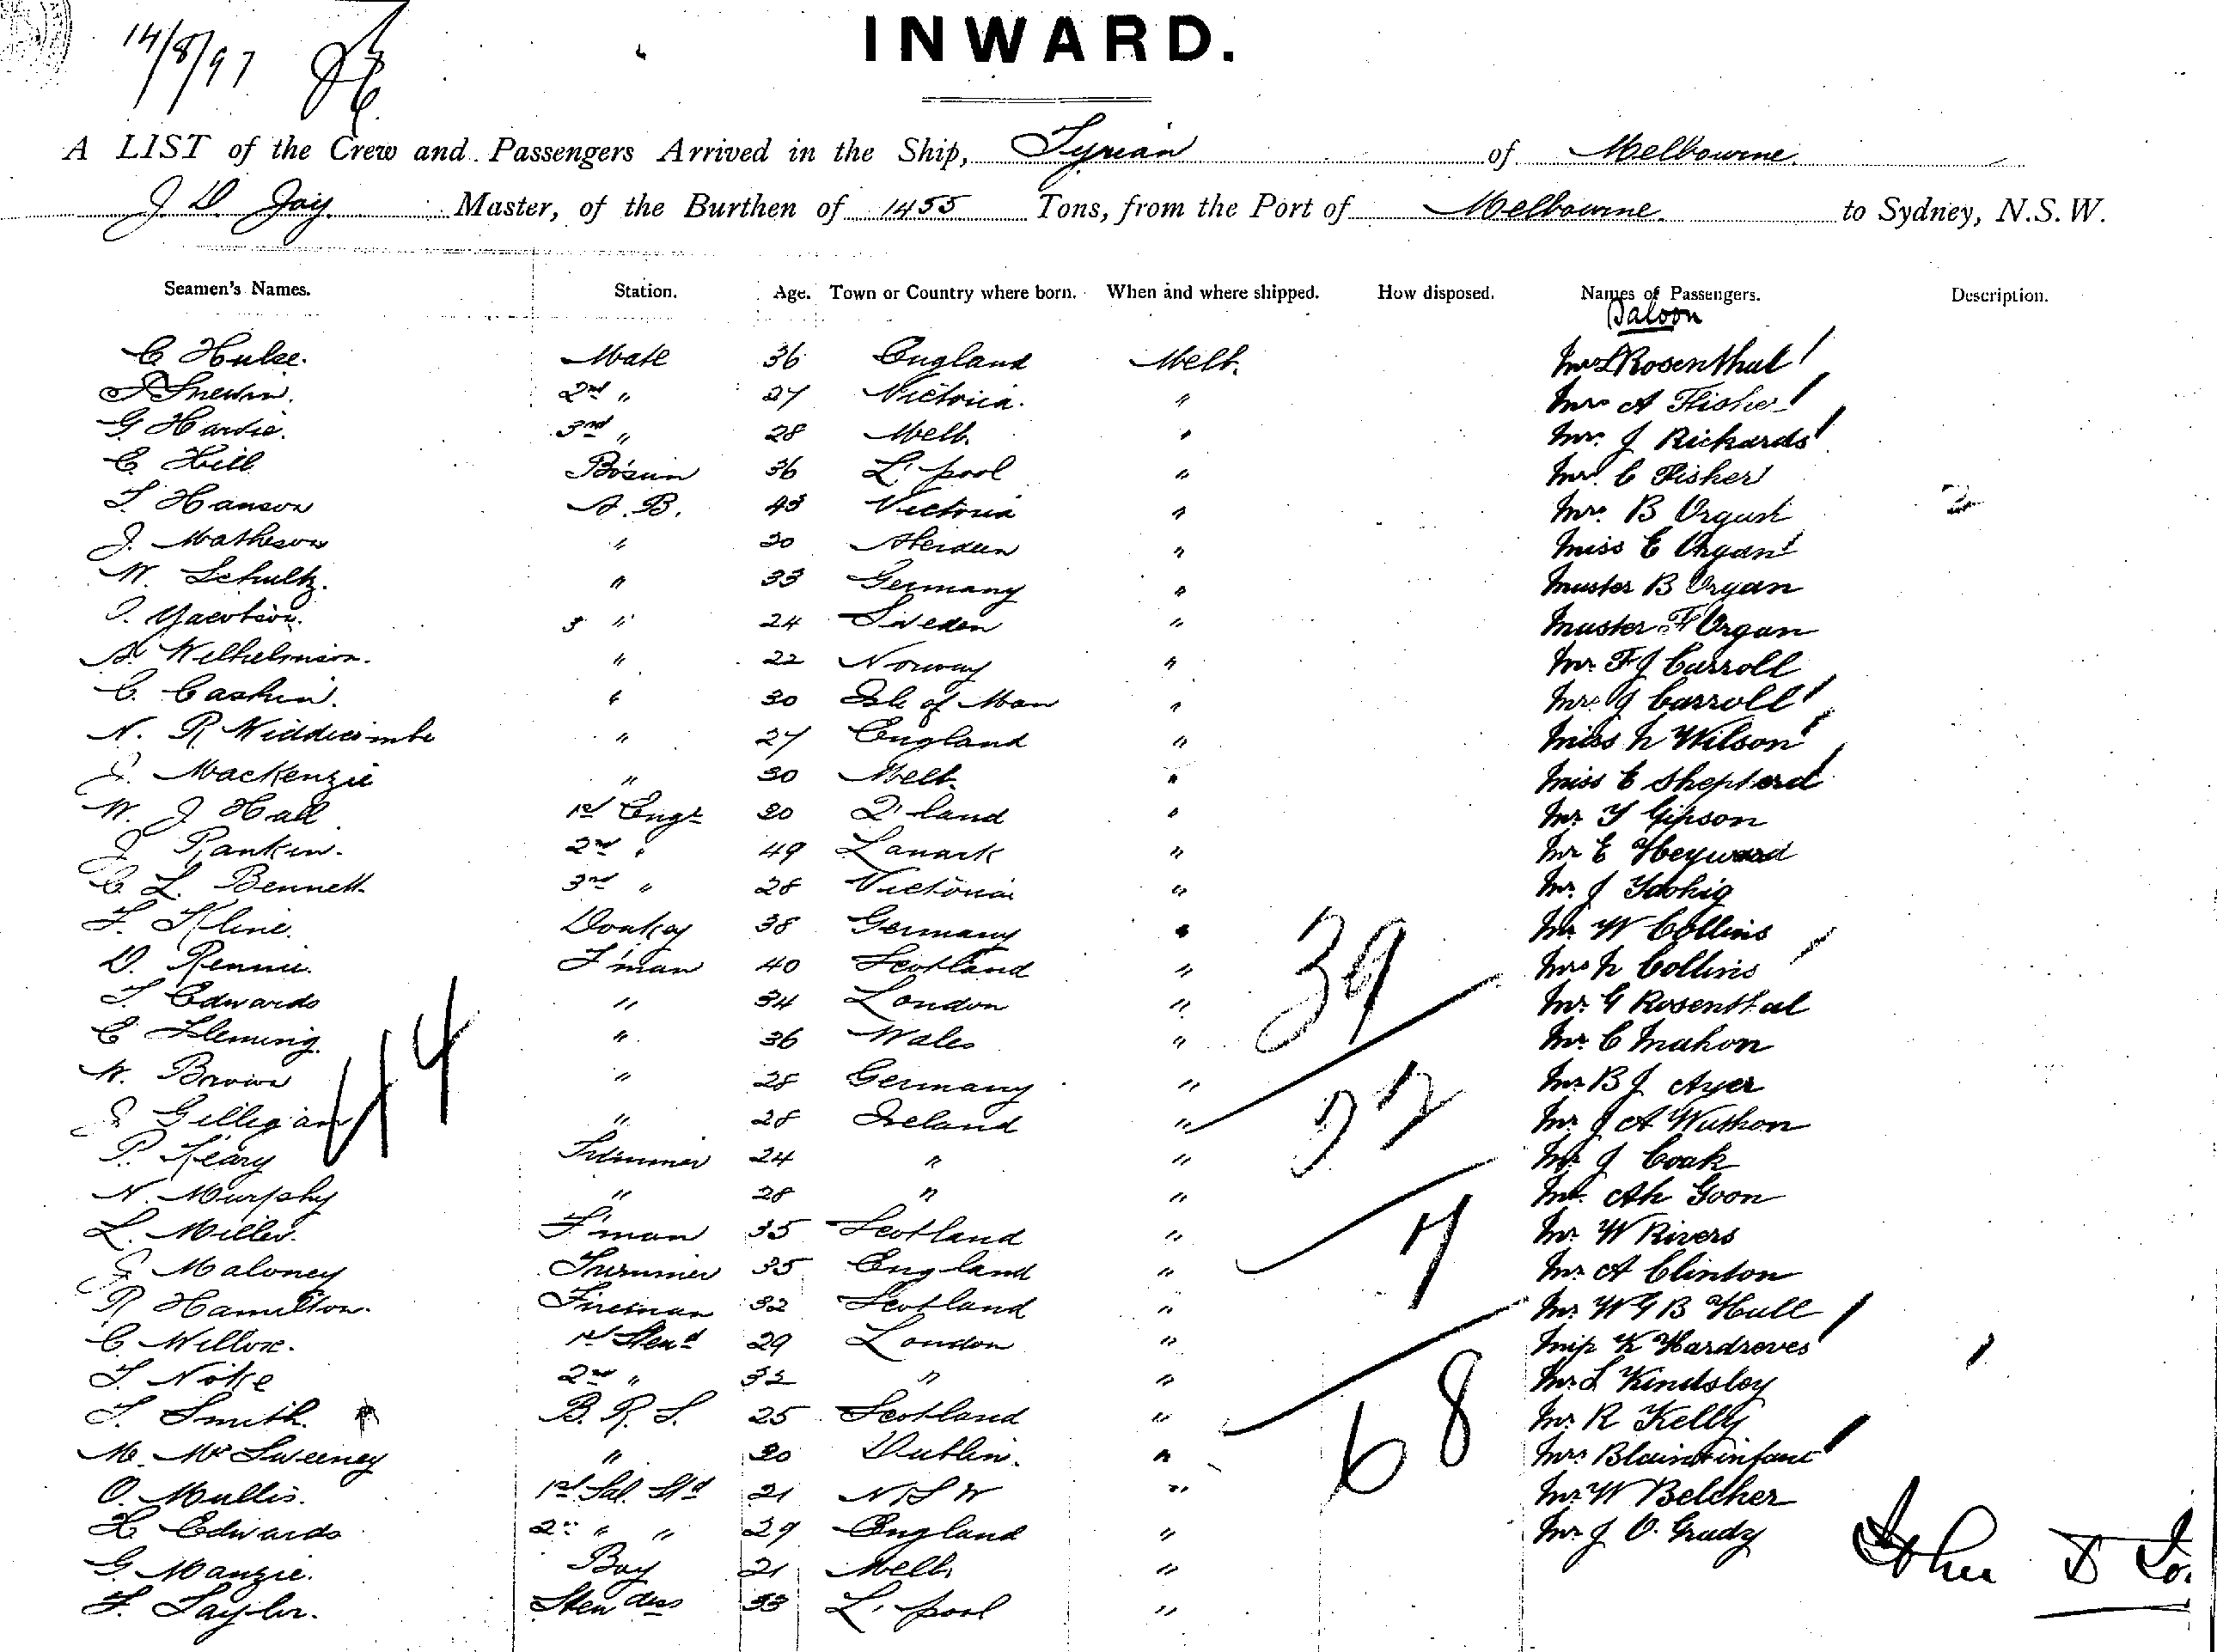 14/8/97
INWARD.
A LIST of the Crew and Passengers Arrived in the Ship, Tyrian of Melbourne
J D Joy. Master, of the Burthen of 1455 Tons, from the Port of Melbourne. to Sydney, N.S.W.
Seamen's Names. Station. Age. Town or Country where born. When and where shipped. How disposed. Names of Passengers. Description.
Saloon
C Hulse. Mate 36 England Melb. Rosenthal
2nd " 27 Victoria. " Mrs A Fisher
G Hardie. 3rd " 28 Melb. " J Rickards
C. Hill Bosun 36 L'pool " C Fisher
T. Hanson A.B. 43 Victoria " Mrs. B
J. Matheson " 30 Aberdeen " Miss E Organ
W. Schultz. " 33 Germany " Master B Organ
Yacobson. " 24 Sweden " Master F Organ
A. Wilhelmson. " 22 Norway " Mr. F J Carroll
C. Cashin. " 30 Isle of Man " Mrs J Carroll
N. R Widdicombe " 27 England " Miss N Wilson
J. Mackenzie " 30 Melb. " Miss E Shepherd
W. J Hall 1st Engr 30 Q'land " Mr. T Gipson
J Rankin. 2nd " 49 Lanark " Mr E Heyward
C L. Bennett 3rd " 28 Victoria " Mr. J
F. Kline. Donkey 38 Germany " Mr W Collins
D. Rennie. F'man 40 Scotland " Mrs N Collins
T. Edwards " 34 London " Mr. G Rosenthal
39
C Fleming. " 36 Wales " Mr. C Mahon
W. Brown " 28 Germany " Mr B J Ayer
44
J Gilligan " 28 Ireland " Mr. J A
P. Keary Trimmer 24 " " Mr J Cook
N. Murphy " 28 " " Mr. Ah Goon
L. Miller. F'man 35 Scotland " Mr. W Rivers
7
J Maloney Trimmer 35 England " Mr. A Clinton
R Hamilton. Fireman 32 Scotland " W G B Hull
C. Willox. 1st Stewd 29 London " Miss K Hardroves
T. Noke 2nd " 32 " " Kindsley
T. Smith. B. R. S. 25 Scotland " Mr. R Kelly
68
M. McSweeney " 30 Dublin. " Mrs Blain & infant
O. Mullis. 1st Sal. Std 21 N S W " Mr W Belcher
H Edwards 2nd " " 29 England " Mr. J O. Grady
G. Manzie. Boy 21 Melb. "
F. Taylor. Stewdess 33 L'pool "
John D